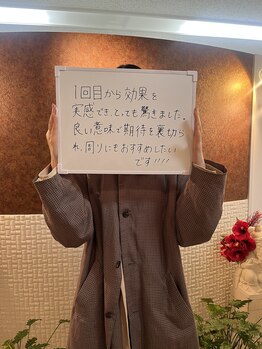 1回目から効果を
実感でき、とっても驚きました。
良い意味で期待を裏切ら
れ、周りにもおすすめしたい
です!!!!